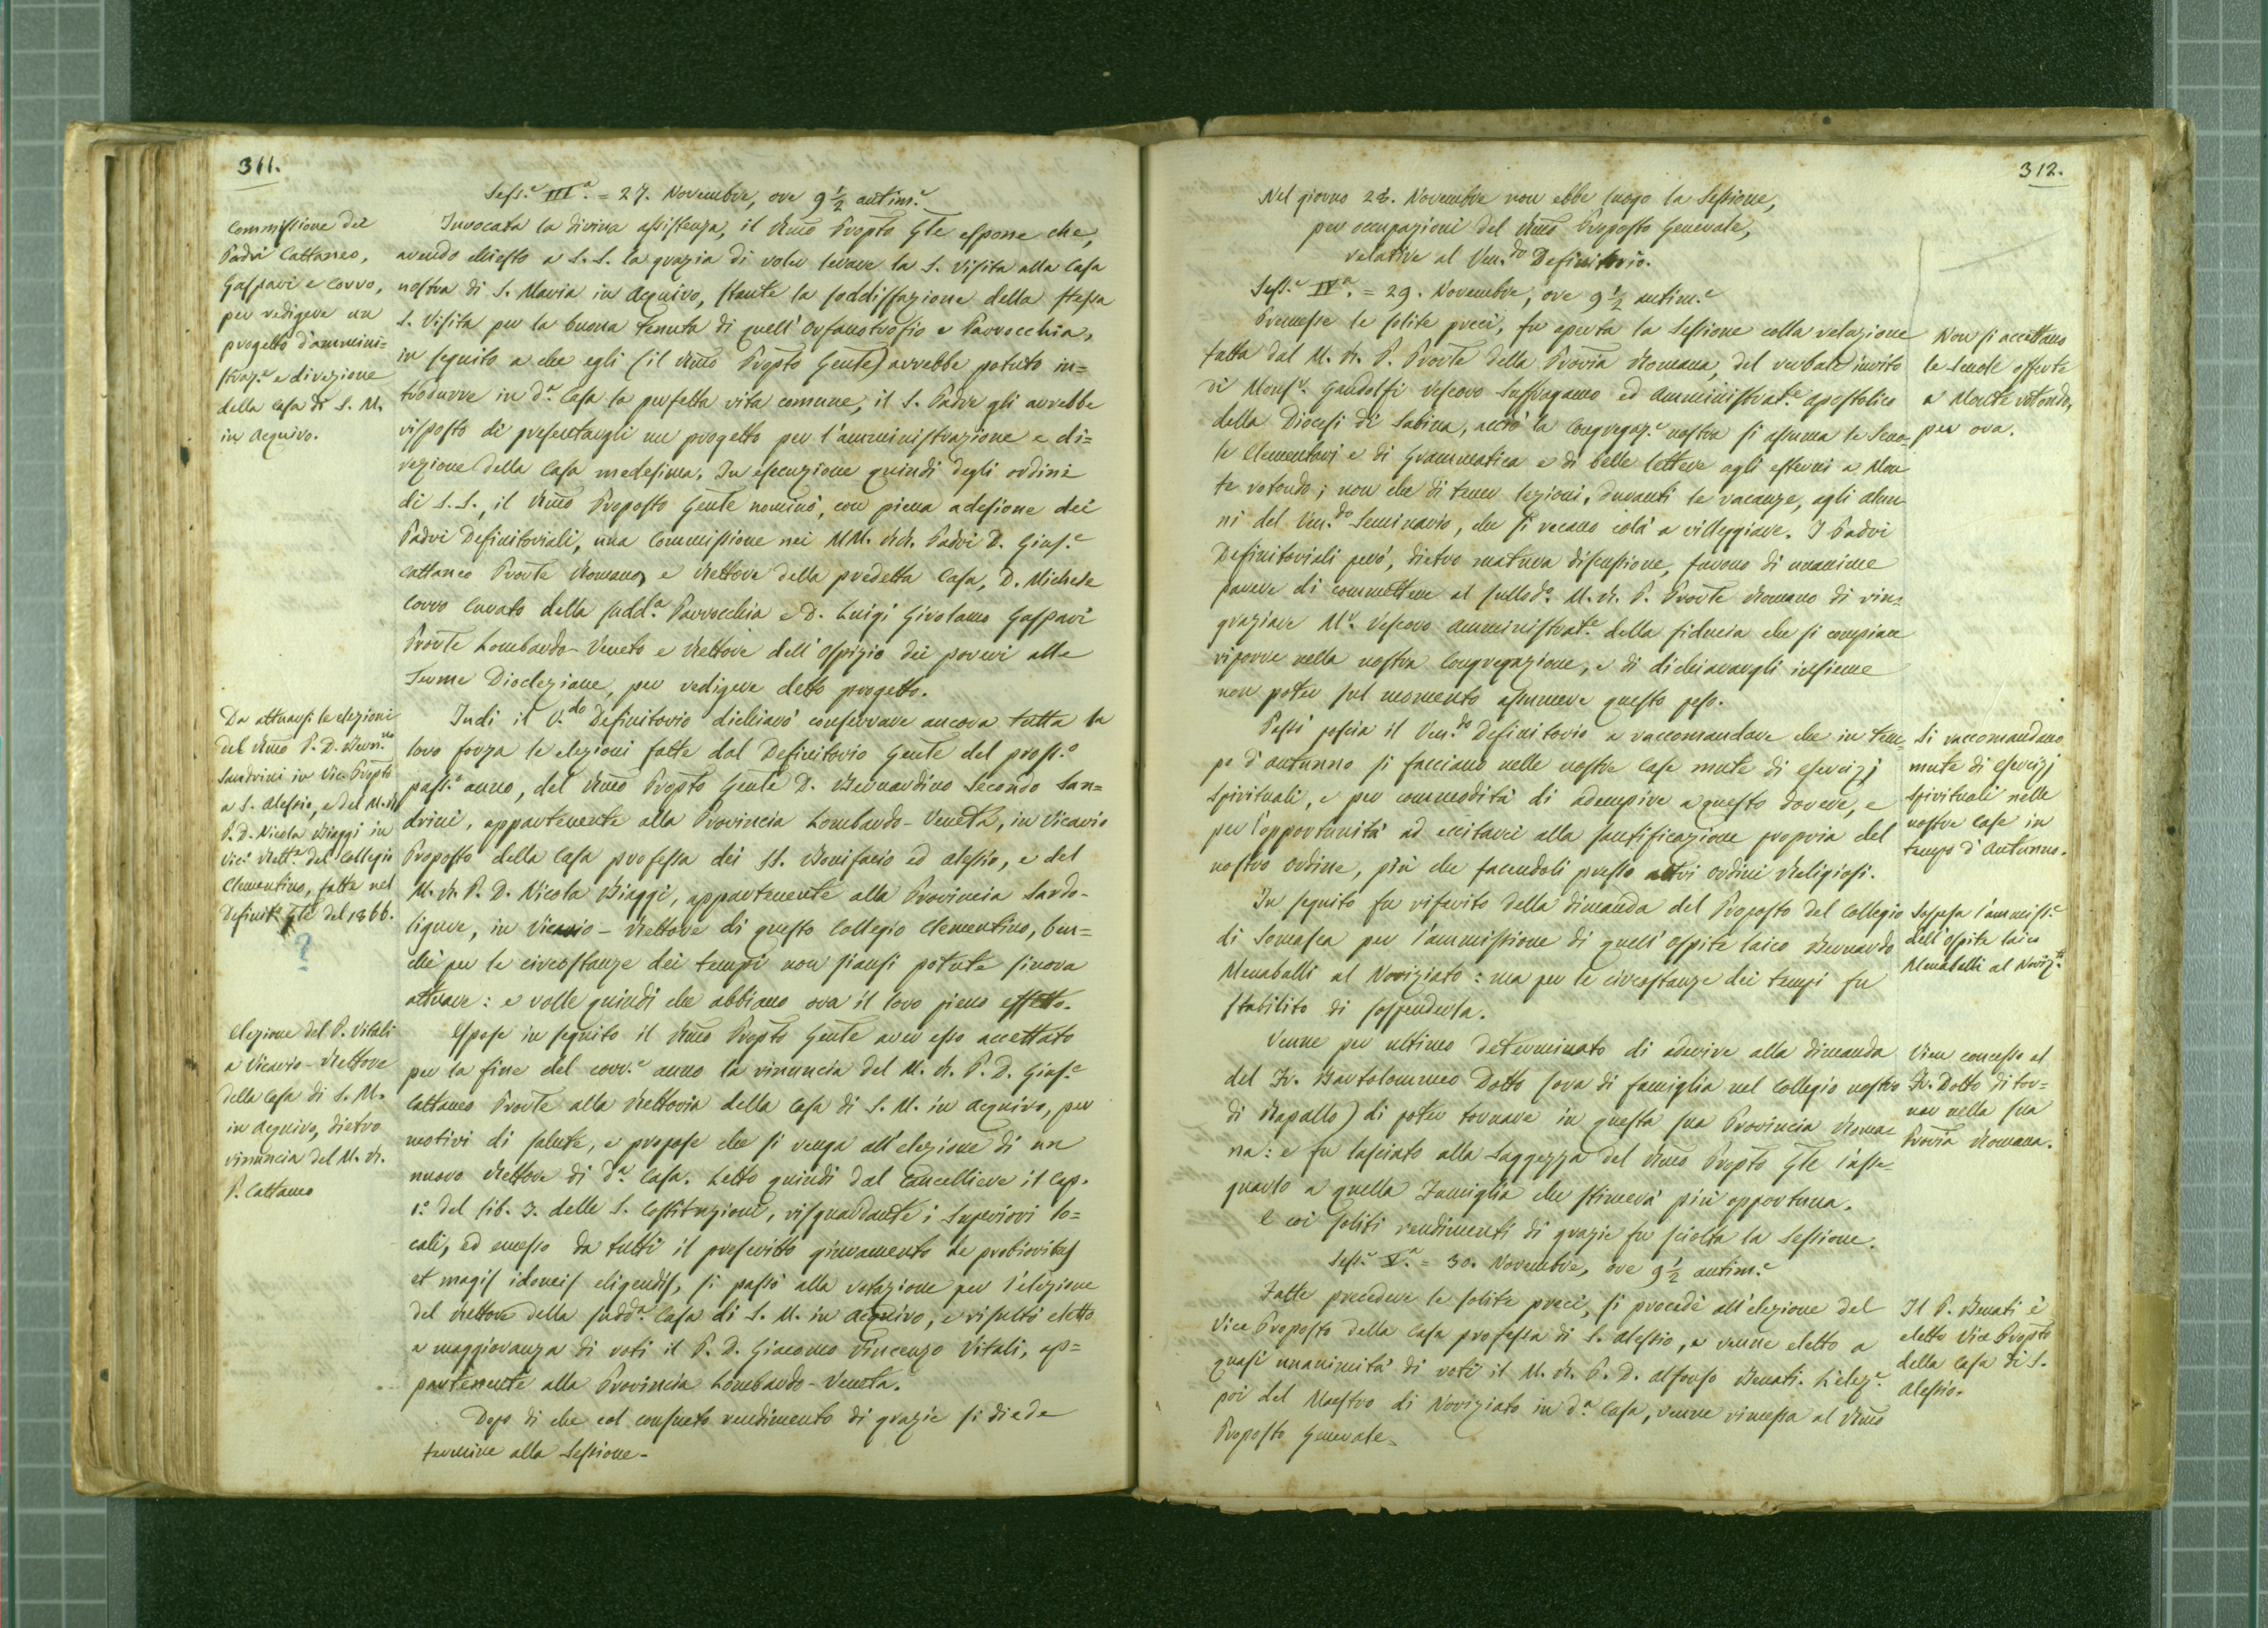 311.
Sess.e III.a = 27. Novembre, ore 9 1/2 antim.e
Commissione dei
Padri Cattaneo,
Gaspari e Corvo,
per redigere un
progetto d'ammini=
straz.e e direzione
della Casa di S. M.
in Aquiro.
Invocata la divina assistenza, il Rmo Propto Gle espone che,
avendo chiesto a S. S. la grazia di voler levare la S. Visita alla Casa
nostra di S. Maria in Aquiro, stante la soddisfazione della stessa
S. Visita per la buona tenuta di quell'Orfanotrofio e Parrocchia,
in seguito a che egli (il Rmo Propto Gente) avrebbe potuto in=
trodurre in d.a Casa la perfetta vita comune, il S. Padre gli avrebbe
risposto di presentargli un progetto per l'amministrazione e di=
rezione della Casa medesima. In esecuzione quindi degli ordini
di S. S., il Rmo Proposto Gente nominò, con piena adesione dei
Padri Definitoriali, una Commissione nei MM. RR. Padri D. Gius.e
Cattaneo Prorle Romano, e Rettore della predetta Casa, D. Michele
Corvo Curato della sudd.a Parrocchia e D. Luigi Girolamo Gaspari
Prorle Lombardo-Veneto e Rettore dell'Ospizio dei poveri alle
Terme Diocleziane, per redigere detto progetto.
Da attuarsi le elezioni
del Rmo P. D. Bern.no
Sandrini in Vic. Propto
a S. Alessio, e del M. R.
P. D. Nicola Biaggi in
Vice Rett.e del Collegio
Clementino, fatte nel
Definit.o Gle del 1866.
?
Indi il V.do Definitorio dichiarò conservare ancora tutta la
loro forza le elezioni fatte dal Definitorio Gente del pross.o
pass.o anno, del Rmo Propto Gente D. Bernardino Secondo San=
drini, appartenente alla Provincia Lombardo-Veneta, in Vicario
Proposto della Casa professa dei SS. Bonifacio ed Alessio, e del
M. R. P. D. Nicola Biaggi, appartenente alla Provincia Sardo-
ligure, in Vicario-Rettore di questo Collegio Clementino, ben=
chè per le circostanze dei tempi non siansi potute finora
attuare: e volle quindi che abbiano ora il loro pieno effetto.
Elezione del P. Vitali
a Vicario-Rettore
della Casa di S. M.
in Aquiro, dietro
rinuncia del M. R.
P. Cattaneo
Espose in seguito il Rmo Propto Gente aver esso accettato
per la fine del corr.e anno la rinuncia del M. R. P. D. Gius.e
Cattaneo Prorle alla Rettoria della Casa di S. M. in Aquiro, per
motivi di salute, e propose che si venga all'elezione di un
nuovo Rettore di d.a Casa. Letto quindi dal Cancelliere il Cap.
1.o del lib. 3. delle S. Costituzioni, risguardante i Superiori lo=
cali, ed emesso da tutti il prescritto giuramento de probioribus
et magis idoneis eligendis, si passò alla votazione per l'elezione
del Rettore della sudd.a Casa di S. M. in Aquiro, e risultò eletto
a maggioranza di voti il P. D. Giacomo Vincenzo Vitali, ap=
partenente alla Provincia Lombardo-Veneta.
Dopo di che col consueto rendimento di grazie si diede
termine alla Sessione.
312.
Nel giorno 28. Novembre non ebbe luogo la Sessione,
per occupazioni del Rmo Proposto Generale,
relative al Ven.do Definitorio.
Sess.e IV.a = 29. Novembre, ore 9 1/2 antim.e
Premesse le solite preci, fu aperta la Sessione colla relazione
fatta dal M. R. P. Prorle della Provia Romana, del verbale invito
di Monsr. Gandolfi Vescovo Suffraganeo ed Amministrat.e Apostolico
della Diocesi di Sabina, acciò la Congregaz.e nostra si assuma le Scuo-
le Elementari e di Grammatica e di belle lettere agli esterni a Mon
te rotondo; non che di tener lezioni, durante le vacanze, agli alun
ni del Ven.do Seminario, che si recano colà a villeggiare. I Padri
Definitoriali però, dietro matura discussione, furono di unanime
parere di commettere al sullod.o M. R. P. Prorle Romano di rin=
graziare Mr. Vescovo Amministrat.e della fiducia che si compiace
riporre nella nostra Congregazione, e di dichiarargli insieme
non poter sul momento assumere questo peso.
Non si accettano
le scuole offerte
a Monte rotondo,
per ora.
Passò poscia il Ven.do Definitorio a raccomandare che in tem=
po d'autunno si facciano nelle nostre Case mute di esercizj
spirituali, e per commodità di adempire a questo dovere, e
per l'opportunità ad eccitarci alla santificazione propria del
nostro Ordine, più che facendoli presso altri Ordini Religiosi.
Si raccomandano
mute di esercizj
spirituali nelle
nostre Case in
tempo d'Autunno.
In seguito fu riferito della dimanda del Proposto del Collegio
di Somasca per l'ammissione di quell'Ospite laico Bernardo
Menaballi al Noviziato: ma per le circostanze dei tempi fu
stabilito di sospenderla.
Sospesa l'ammiss.e
dell'ospite laico
Menaballi al Noviz.to
Venne per ultimo determinato di aderire alla dimanda
del Fr. Bartolommeo Dotto (ora di famiglia nel Collegio nostro
di Rapallo) di poter tornare in questa sua Provincia Roma=
na: e fu lasciato alla Saggezza del Rmo Propto Gle l'asse=
gnarlo a quella Famiglia che stimerà più opportuna.
E coi soliti rendimenti di grazie fu sciolta la Sessione.
Vien concesso al
Fr. Dotto di tor=
nar nella sua
Provia Romana.
Sess.e V.a = 30. Novembre, ore 9 1/2 antim.e
Fatte precedere le solite preci, si procedè all'elezione del
Vice Proposto della Casa professa di S. Alessio, e venne eletto a
quasi unanimità di voti il M. R. P. D. Alfonso Benati. L'elez.e
poi del Maestro di Noviziato in d.a Casa, venne rimessa al Rmo
Proposto Generale.
Il P. Benati è
eletto Vice Propto
della Casa di S.
Alessio.